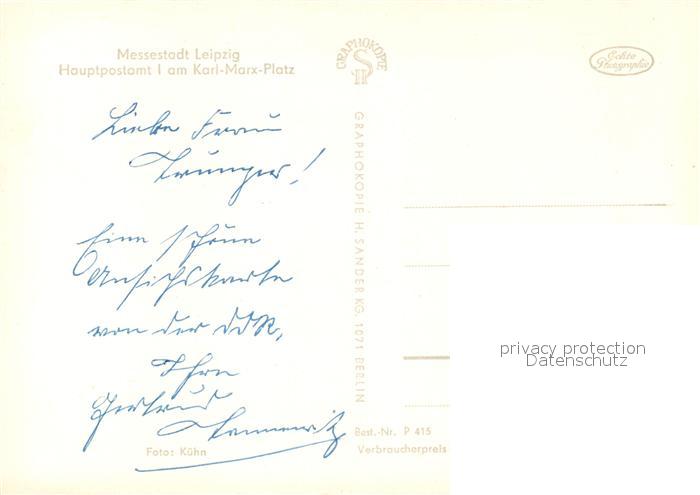 Messestadt Leipzig
Hauptpostamt I am Karl-Marx-Platz
GRAPHOKOPIE
H S
Echte
Photographie
Liebe Frau
Eine schöne
Ansichtskarte
von der DDR,
Ihre
Gertrud
Foto: Kühn
GRAPHOKOPIE H. SANDER KG, 1071 BERLIN
Best.-Nr. P 415
Verbraucherpreis
privacy protection
Datenschutz